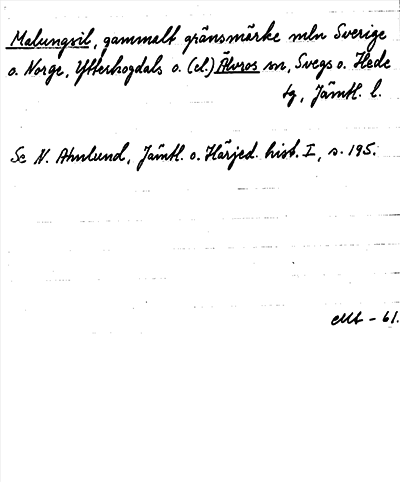 Malungsil, gammalt gränsmärke mln Sverige
o. Norge, Ytterhogdals o. (el.) Älvros sn, Svegs o. Hede
tg, Jämtl. l.
Se N. Ahnlund, Jämtl. o. Härjed. hist. I, s. 195.
- 61.